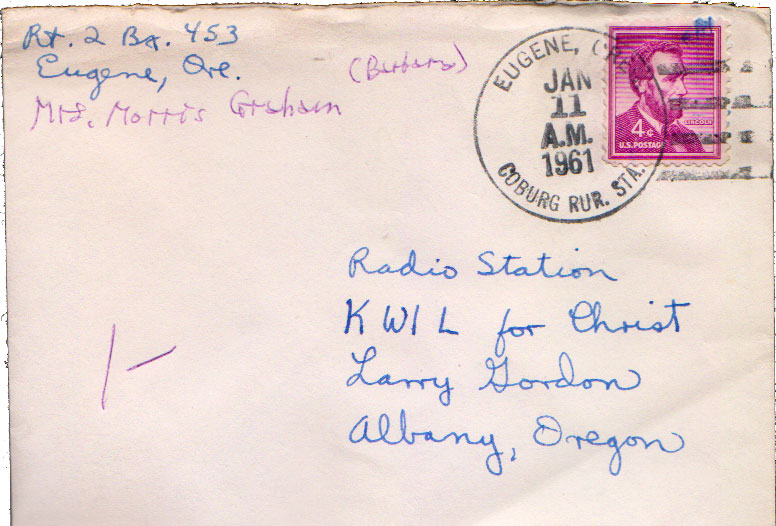 Rt. 2 Bx. 453
Eugene, Ore.
(Barbara)
Mrs. Morris Graham
EUGENE,
JAN
11
A.M.
1961
COBURG RUR. STA.
4¢
LINCOLN
U.S. POSTAGE
Radio Station
KWIL for Christ
Larry Gordon
Albany, Oregon